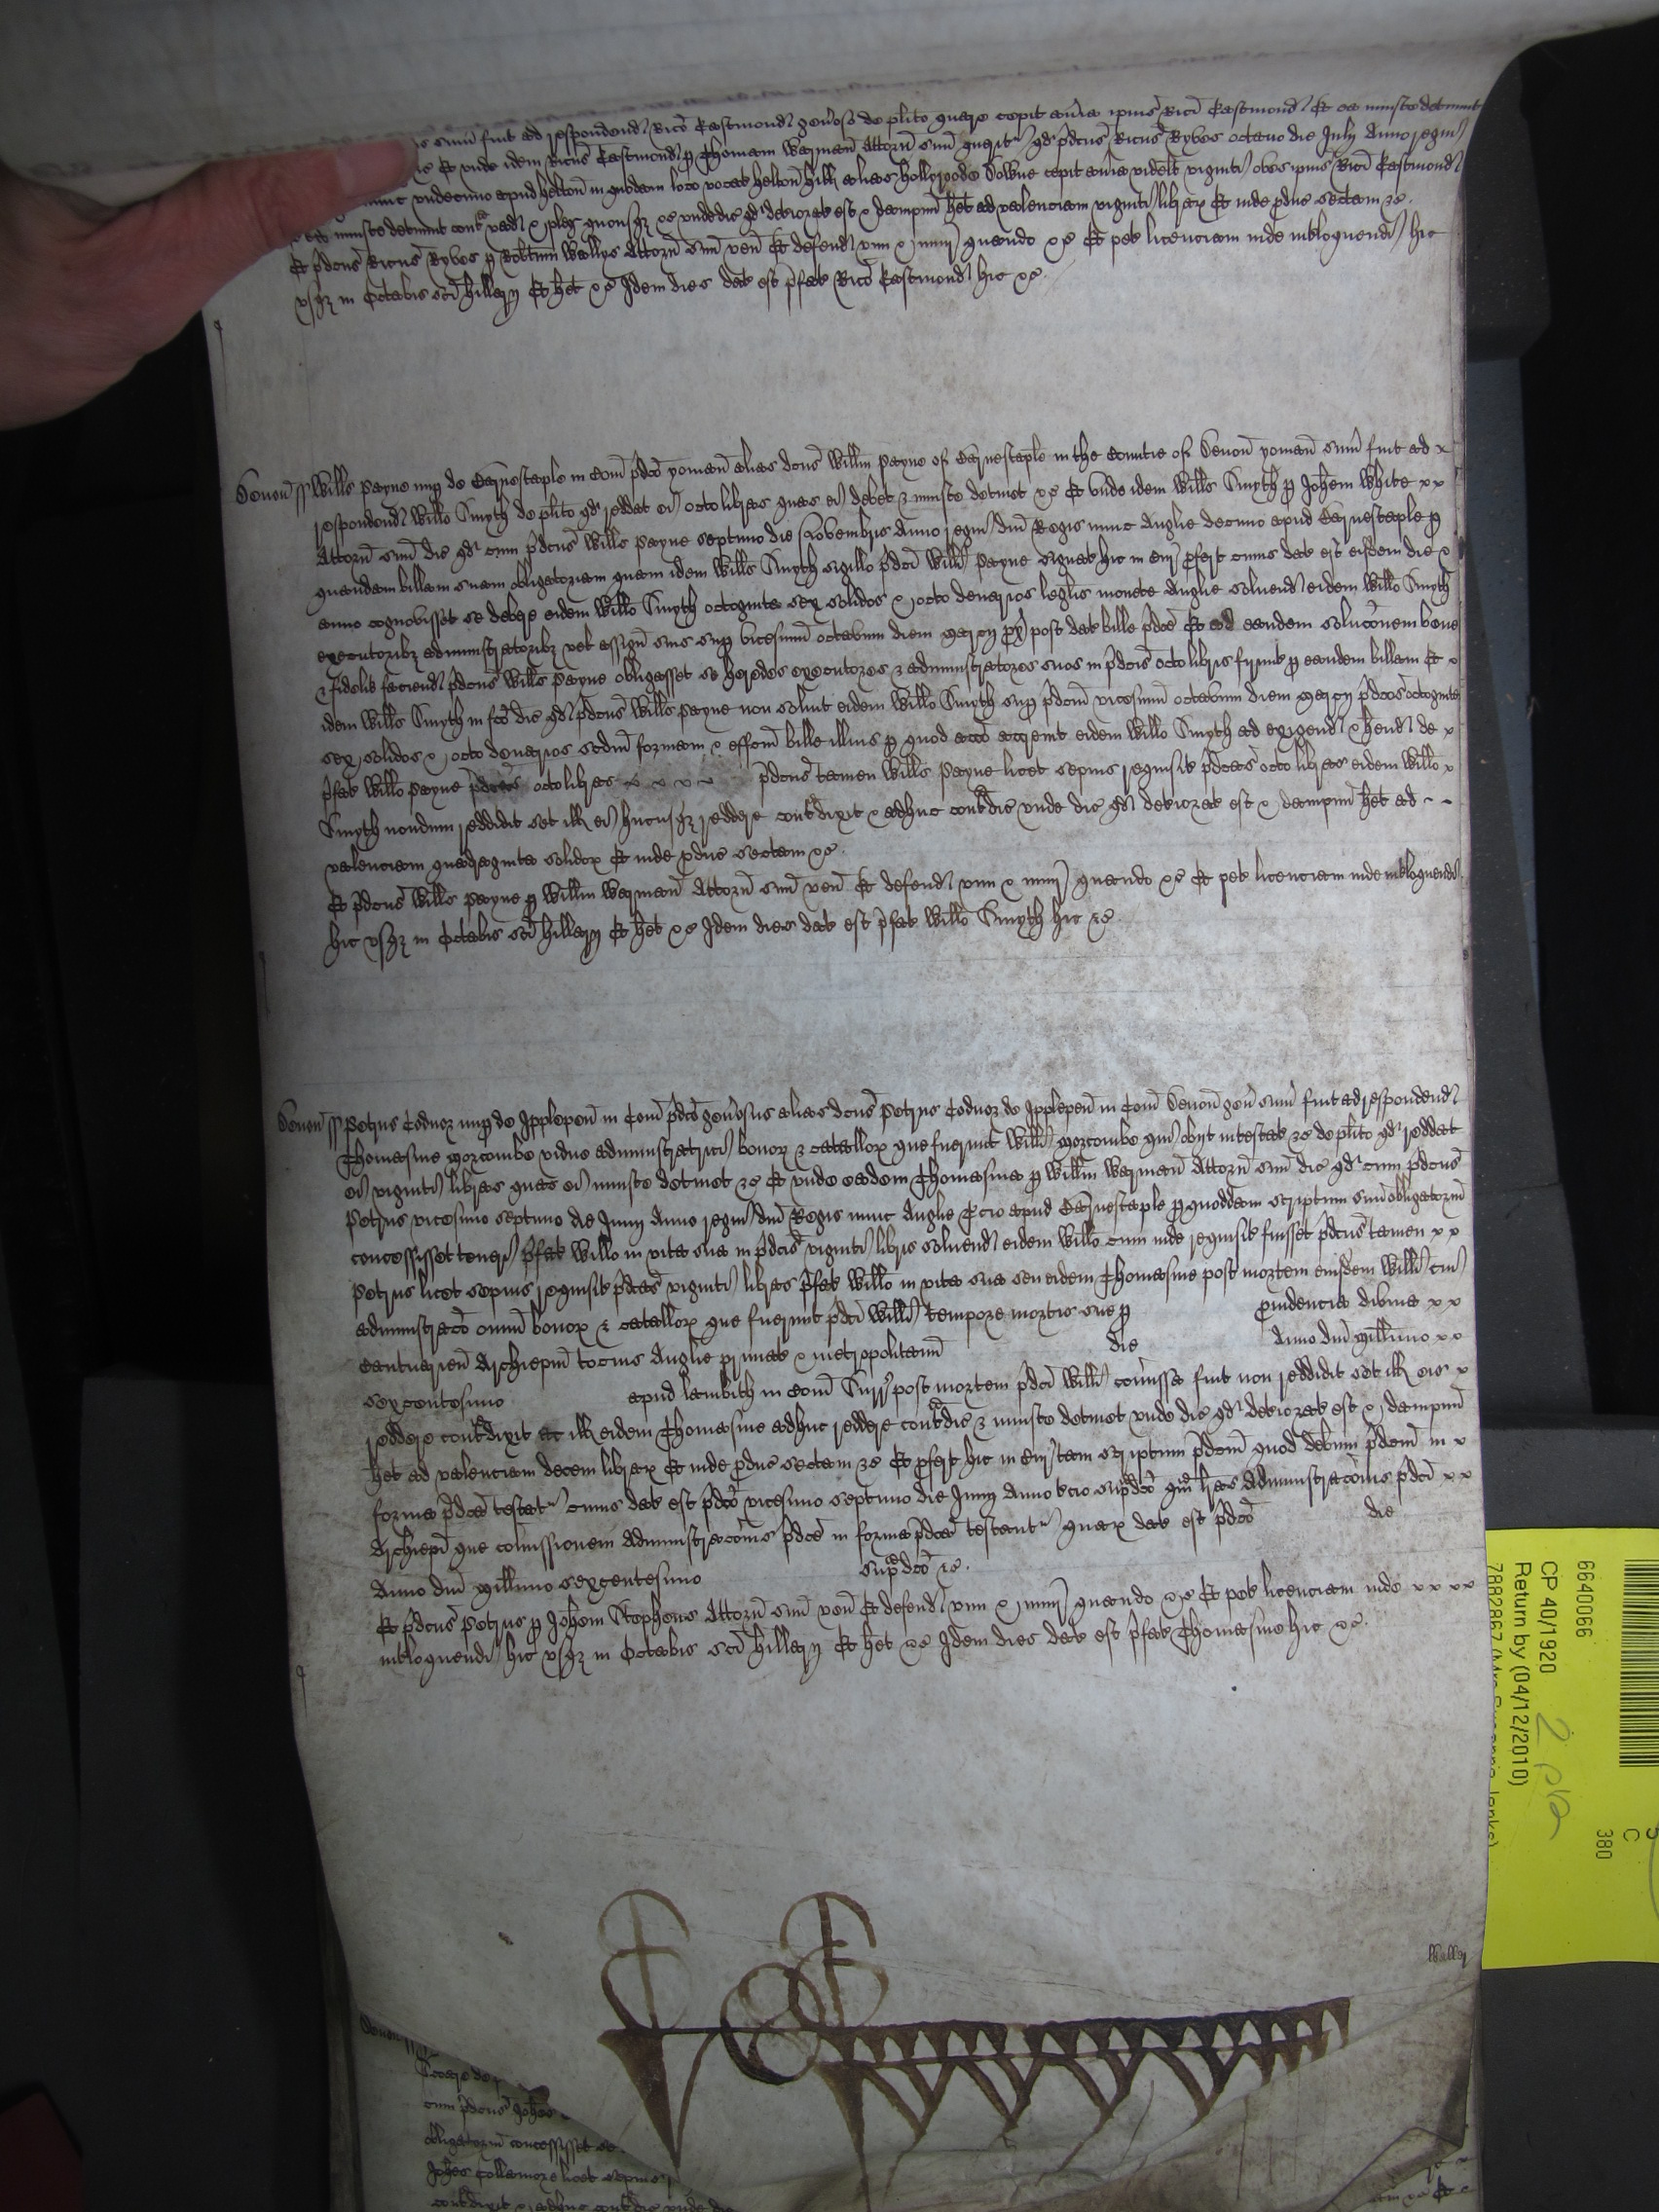 sum̄ fuit ad respondend Ric̄o Eastmond gen̄oso de pl̄ito quare cepit aūia ip̄ius Ric̄i Eastmond Et ea iniuste detinuit
Et unde idem Ric̄us Eastmond p Thomam Waṛman̄ Attorn̄ suū queritr qd p̄dcūs Ric̄us Rybes octauo die July Anno regni
nunc undecimo apud helton̄ in quodam loco vocat helton̄ hill alias hollyroode Downe cepit aūia videlt viginti oves ip̄ius Ric̄i Eastmond
iniuste detinuit cont̄ vad & pleg quousqȝ &c̄ unde dic̄ qd deteriorat est & dampnū het ad valenciam viginti librar̄ Et inde p̄duc̄ sectam &c̄.
Et p̄dcūs Ric̄us Rybes p Rob̄tum Wallys Attorn̄ suū ven̄ Et defend vim & iniur̄ quando &c̄ Et pet licenciam inde int̄loquendi hic
usqȝ in Octabis sc̄i hillarij Et h̄et &c̄ Idem dies dat est p̄fat Ric̄o Eastmond hic &c̄.
Deuon̄ ss Will̄s Payne nup de Barnestaple in com̄ p̄dcō yoman̄ alias dcūs Will̄m Payne of Barnestaple in the Countie of Deuon̄ yoman̄ sum̄ fuit ad
respondend Will̄o Smyth de pl̄ito qd reddat ei octo libras quas ei debet & iniuste detinet &c̄ Et unde idem Will̄s Smyth p Joh̄em White
Attorn̄ suū dic̄ qd cum p̄dcūs Will̄s Payne septimo die Novembris Anno regni dn̄i Regis nunc Anglie decimo apud Barnestaple p
quandam billam suam obligatoriam quam idem Will̄s Smyth sigillo p̄dcī Will̄i Payne signat hic in cur̄ profert cuius dat est eisdem die &
anno cognovisset se debere eidem Will̄o Smyth octoginta sex solidos & octo denarios leglis monete Anglie solvend eidem Will̄o Smyth
executoribȝ administratoribȝ vel assign̄ suis sup vicesimū octavum diem Marcij prox̄ post dat bille p̄dcē Et ad eandem soluc̄onem bene
& fidelit faciend p̄dcūs Will̄s Payne obligasset se heredes executores & administratores suos in p̄dcīs octo libris firmit p eandem billam Et
idem Will̄s Smyth in fcō dic̄ qd p̄dcūs Will̄s Payne non solvit eidem Will̄o Smyth sup p̄dcūm vicesimū octavum diem Marcij p̄dcōs octoginta
sex solidos & octo denarios scdm̄ formam & effcm̄ bille illius p quod accō accrevit eidem Will̄o Smyth ad exigend & hend de
p̄fat Will̄o Payne p̄dcās octo libras p̄dcūs tamen Will̄s Payne licet sepius requisit p̄dcās octo libras eidem Will̄o
Smyth nondum reddidit set ill ei hucusqȝ reddere cont̄dixit & adhuc cont̄dic̄ unde dic̄ qd deteriorat est & dampnū h̄et ad
valenciam quadraginta solidor̄ Et inde p̄duc̄ sectam &c̄.
Et p̄dcūs Will̄s Payne p Will̄m Waṛman̄ Attorn̄ suū ven̄ Et defend vim & iniur̄ quando &c̄ Et pet licenciam inde int̄loquendi
hic usqȝ in Octabis sc̄i hillarij Et h̄et &c̄ Idem dies dat est p̄fat Will̄o Smyth hic &c̄.
Deuon̄ ss Petrus Codnor nup de Ipplepen̄ in Com̄ p̄dcō gen̄osus alias dcūs Petrus Codnor de Ipplepen̄ in Com̄ Deuon̄ gen̄ sum̄ fuit ad respondend
Thomasine Morcombe vidue administratrici bonor̄ & catallor̄ que fuerunt Will̄i Morcombe qui obijt intestat &c̄ de pl̄ito qd reddat
ei viginti libras quas ei iniuste detinet &c̄ Et unde eadem Thomasina p Will̄m Waṛman̄ Attorn̄ suū dic̄ qd cum p̄dcūs
Petrus vicesimo septimo die Junij Anno regni dn̄i Regis nunc Anglie t̄cio apud Barnestaple p quoddam scriptum suū obligatoriū
concessisset teneri p̄fat Will̄o in vita sua in p̄dcīs viginti libris solvend eidem Will̄o cum inde requisit fuisset p̄dcūs tamen
Petrus licet sepius requisit p̄dcās viginti libras p̄fat Will̄o in vita sua seu eidem Thomasine post mortem eiusdem Will̄i cui
administrac̄o omniū bonor̄ & catallor̄ que fuerunt p̄dcī Will̄i tempore mortis sue p providencia divina
Cantuarien̄ Archiep̄m tocius Anglie primat & metropolitanū die Anno dn̄i Mill̄imo
sexcentesimo apud lambith in com̄ Surr̄ post mortem p̄dcī Will̄i com̄issa fuit non reddidit set ill eis
reddere cont̄dixit ac ill eidem Thomasine adhuc reddere cont̄dic̄ & iniuste detinet unde dic̄ qd deteriorat est & dampnū
h̄et ad valenciam decem librar̄ Et inde p̄duc̄ sectam &c̄ Et profert hic in Cur̄ tam scriptum p̄dcūm quod debitum p̄dcūm in
forma p̄dcā testatr cuius dat est p̄dcō vicesimo septimo die Junij Anno t̄cio sup̄dcō qm̄ l̄ras Administrac̄onis p̄dcī
Archiep̄i que com̄issionem Administrac̄onis p̄dcē in forma p̄dcā testantr quar̄ dat est p̄dcō die
Anno dn̄i Mill̄imo sexcentesimo sup̄dcō &c̄.
Et p̄dcūs Petrus p Joh̄em Stephens Attorn̄ suū ven̄ Et defend vim & iniur̄ quando &c̄ Et pet licenciam inde
int̄loquendi hic usqȝ in Octabis sc̄i hillarij Et h̄et &c̄ Idem dies dat est p̄fat Thomasine hic &c̄.
Deuon̄
cum p̄dcūs Joh̄es
obligatoriū concessisset se
Joh̄es Collamore licet sepius
cont̄dixit & adhuc cont̄dic̄ unde dic̄
6640066
CP 40/1920
Return by (04/12/2010)
7882867
C
380